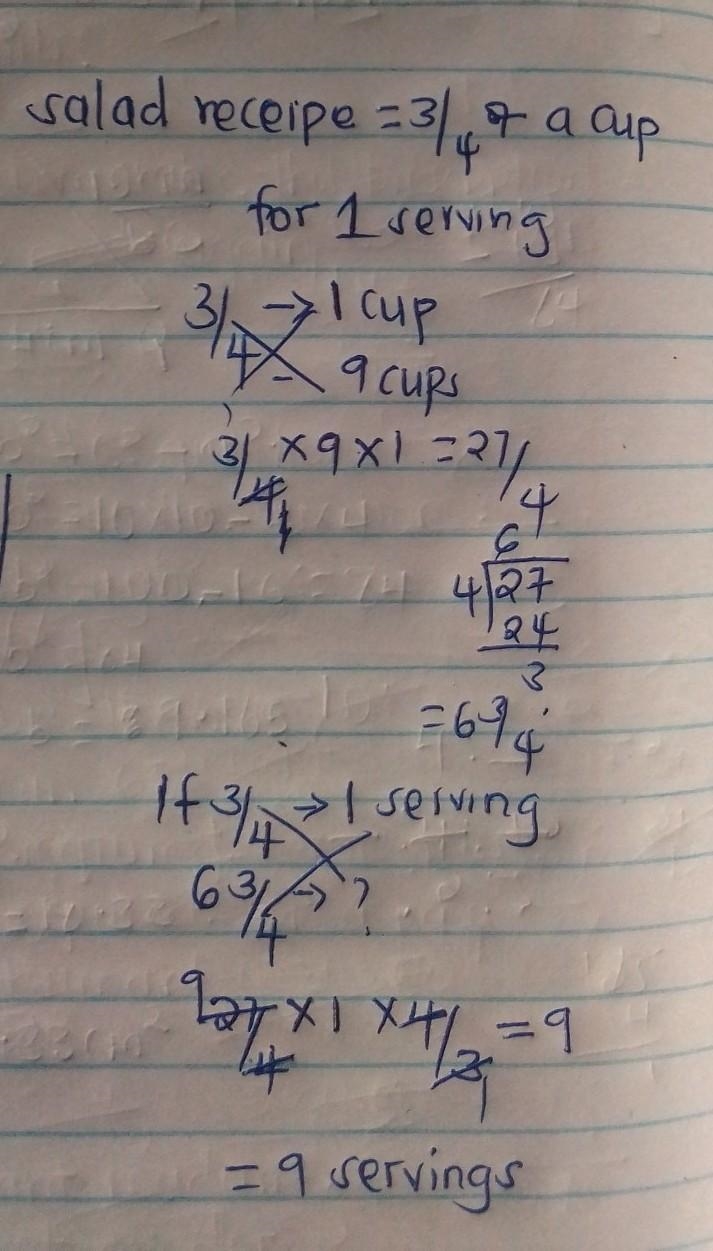 salad receipe = 3/4 of a cup
for 1 serving
3/4 → 1 cup
- 9 cups
3/4 x 9 x 1 = 27/4
6
4 27
24
3
= 6 3/4
If 3/4 → 1 serving
6 3/4 → ?
9 27/4 x 1 x 4/3 1 = 9
= 9 servings